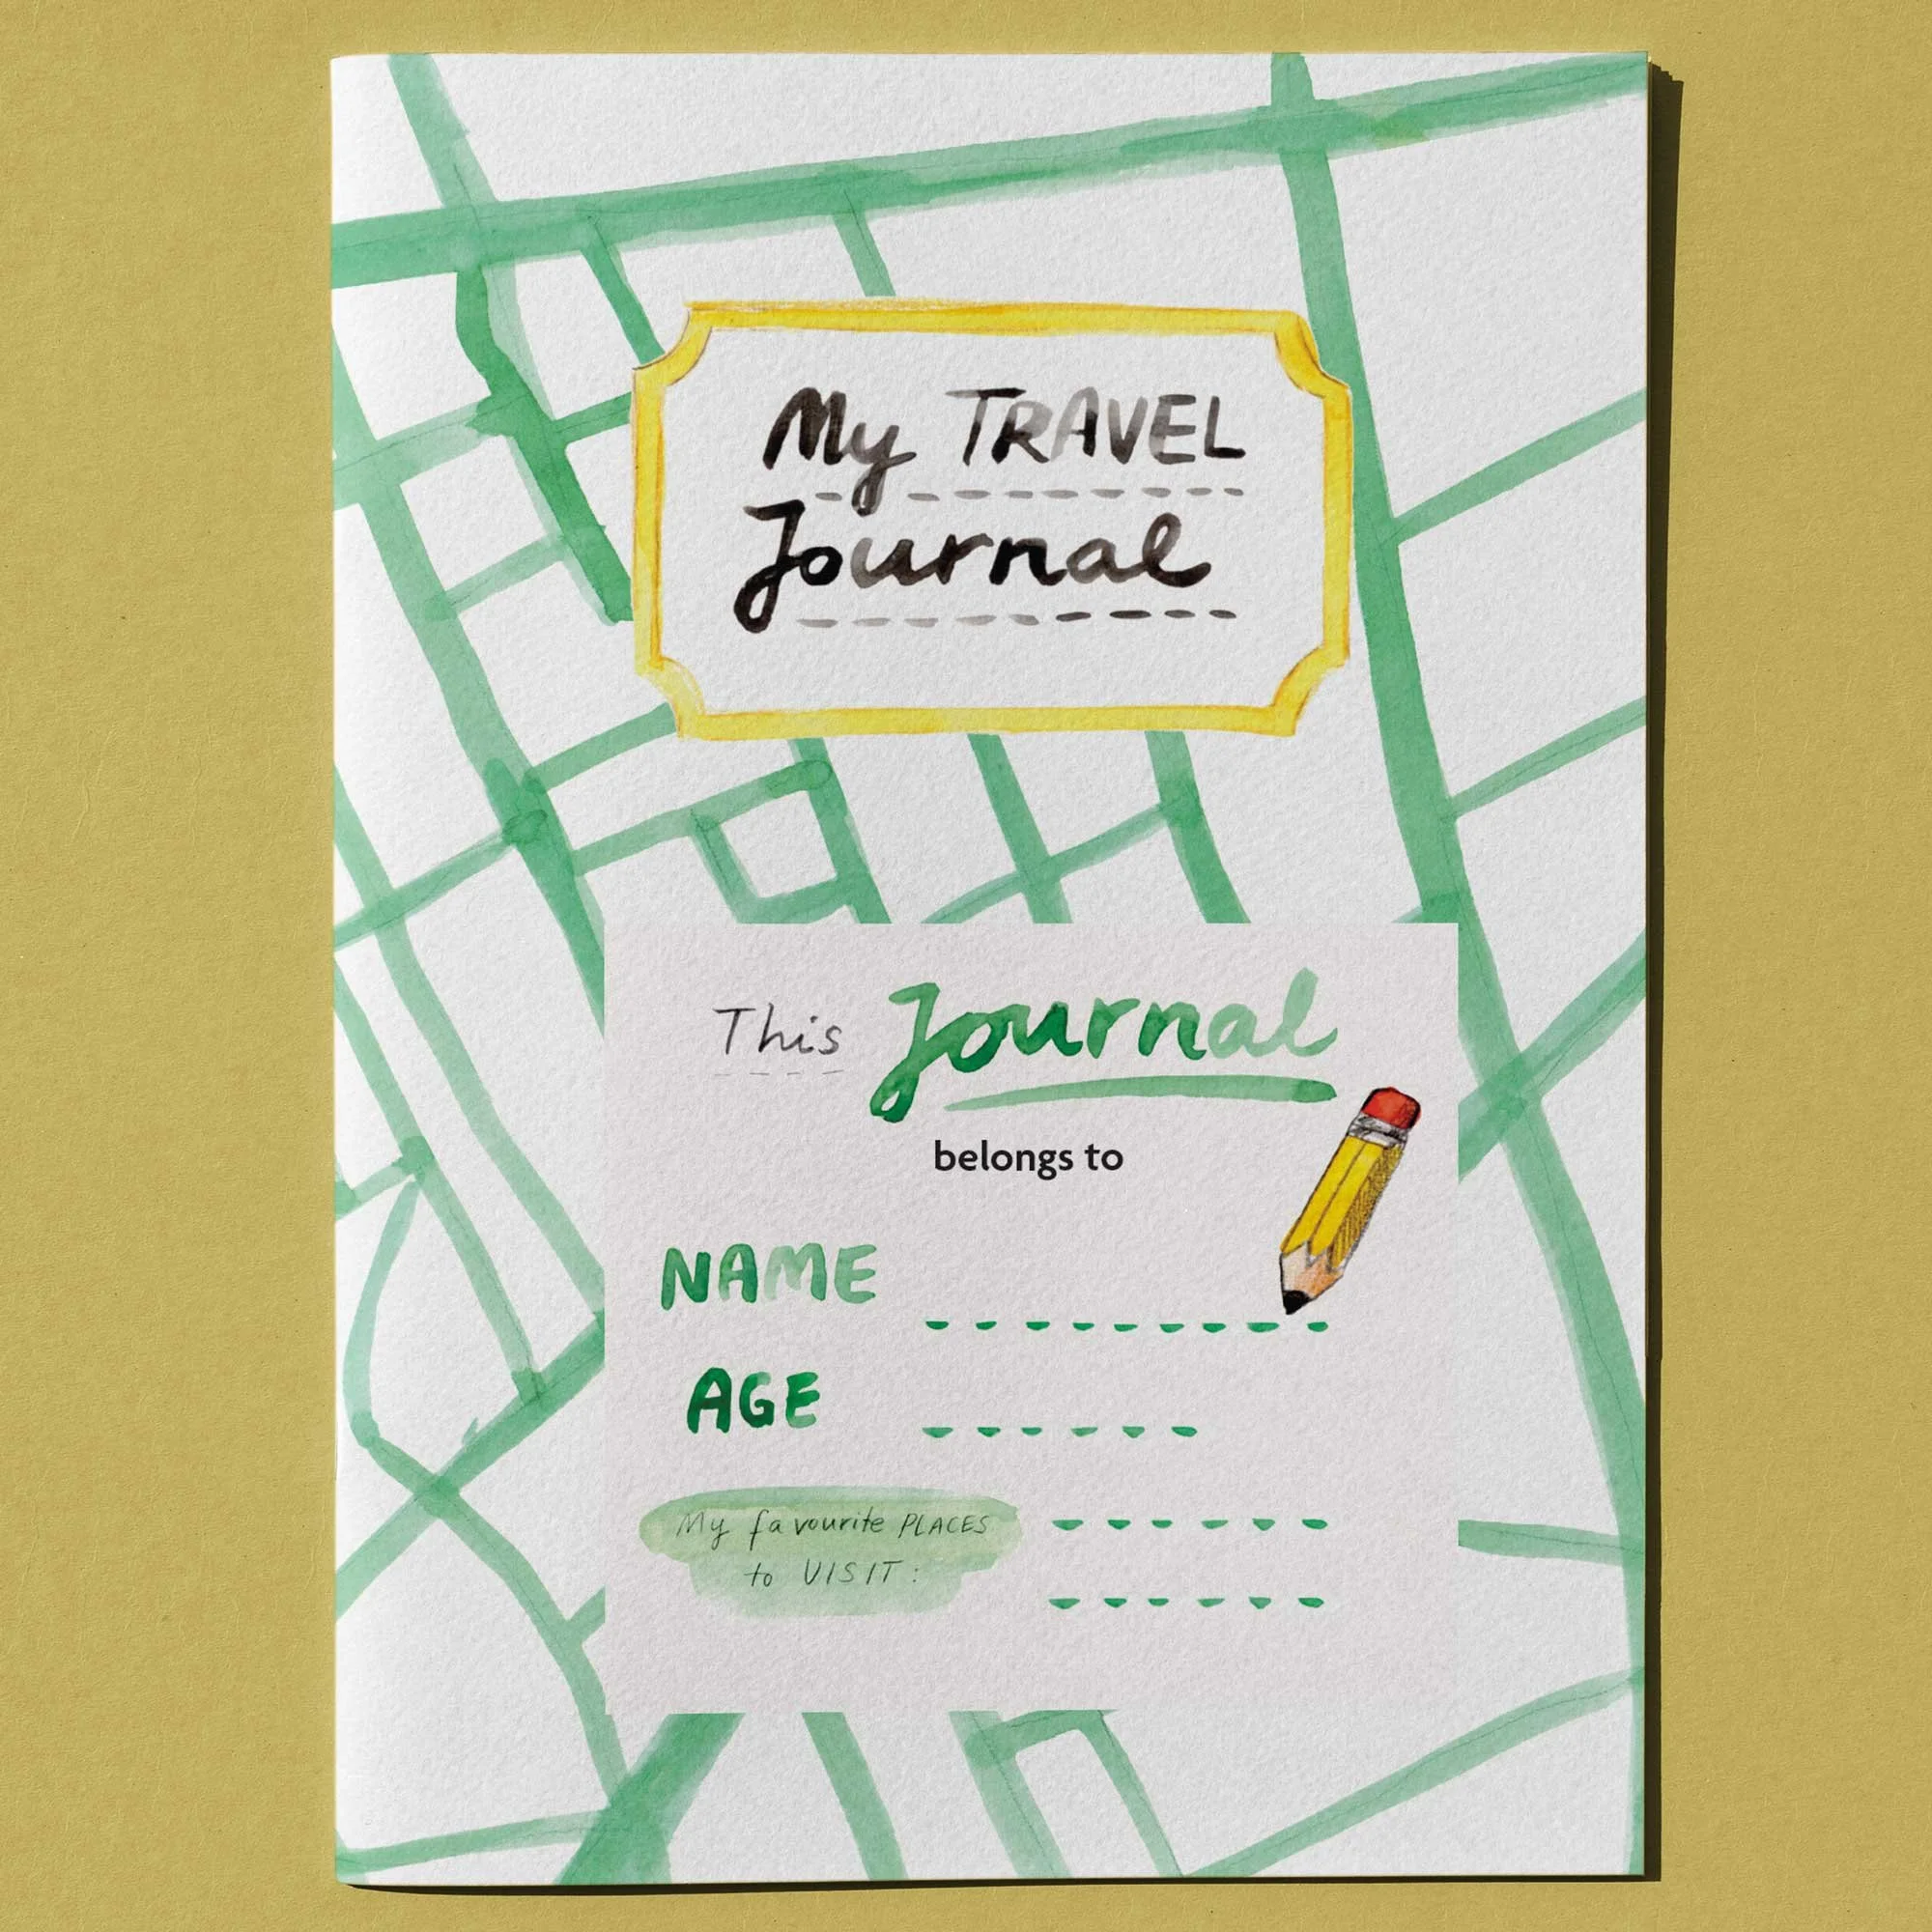 My TRAVEL
Journal
This Journal
belongs to
NAME
AGE
My favourite PLACES
to VISIT: